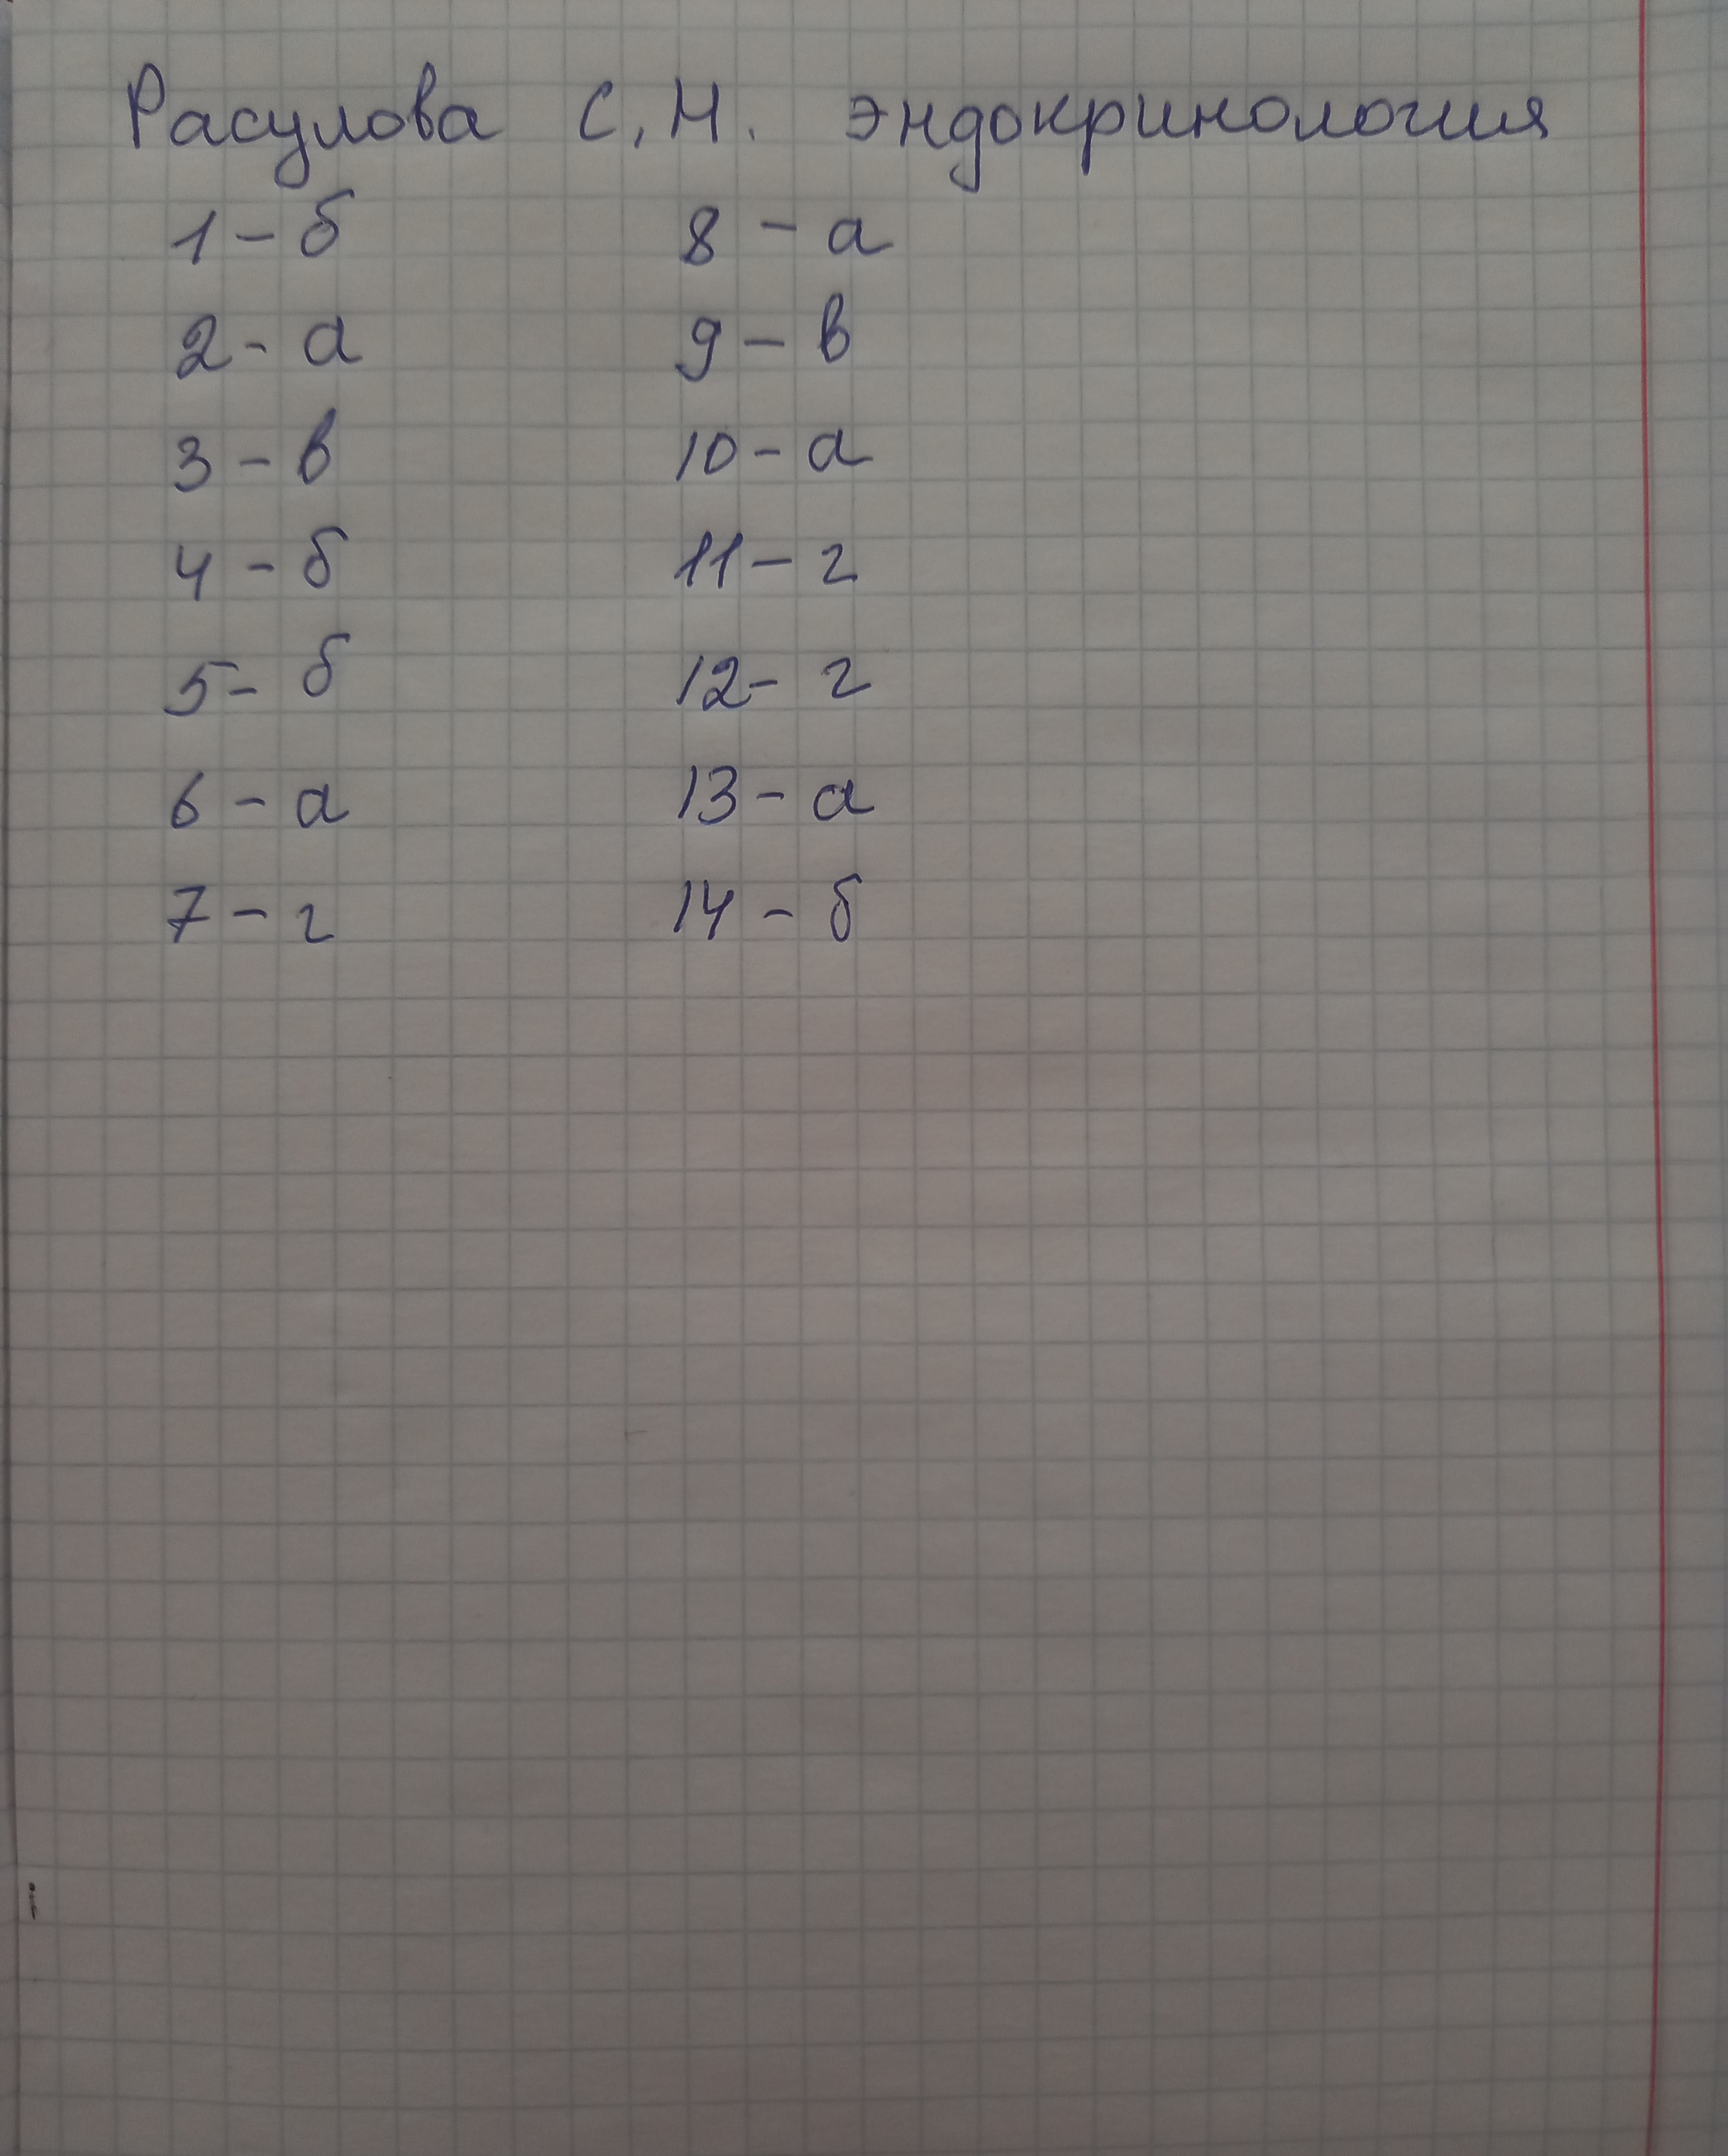 Расулова С.Н. эндокринология
1 - б
2 - а
3 - в
4 - б
5 - б
6 - а
7 - г
8 - а
9 - в
10 - а
11 - г
12 - г
13 - а
14 - б